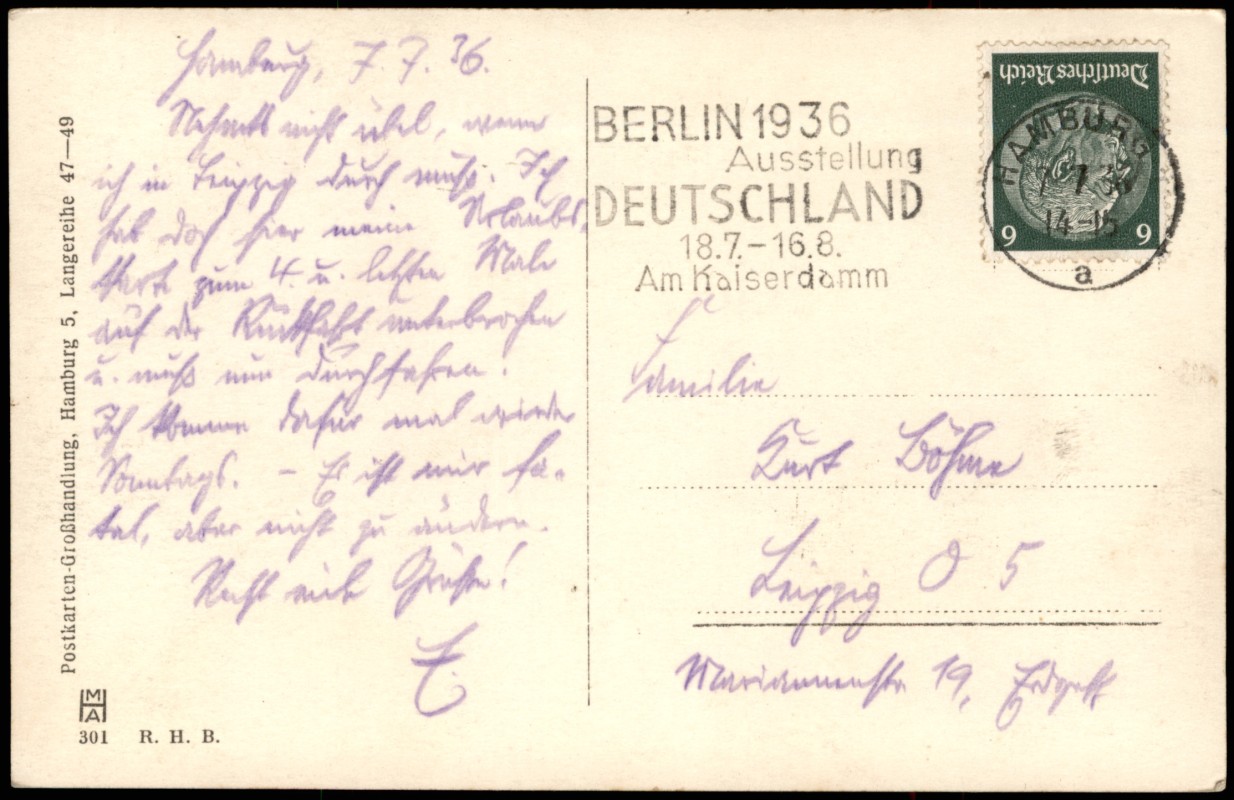 Hamburg, 7. 7. 36.
Nehmts nicht übel, wenn
ich in Leipzig durch muß. Ich
hab doch hier meine Urlaubs-
karte zum 4. u. letzten Male
auf der Rückfahrt unterbrochen
u. muß nun durchfahren.
Ich komme dafür mal wieder
Sonntags. – Es ist mir fa-
tal, aber nicht zu ändern.
Recht viele Grüße!
E.
Postkarten-Großhandlung, Hamburg 5, Langereihe 47—49
M
H
A
301 R. H. B.
BERLIN 1936
Ausstellung
DEUTSCHLAND
18.7.–16.8.
Am Kaiserdamm
Deutsches Reich
6 6
HAMBURG
7.7.36
14-15
a
Familie
Kurt Böhme
Leipzig O 5
Mariannenstr. 19, Erdgesch.